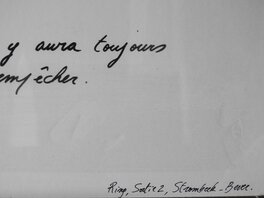 y aura toujours
empêcher.
Ring, Satie 2, Strombeek-Bever.